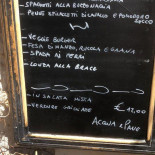 SPAGHETTI ALLA BOCCONAGLIA
PENNE SPAGHETTI DI CAVALLO E POMODORO
SECCO
VEGGIE BURGER
FESA D'MANZO, RUCOLA E GRANA
SPADA AI FERRI
COSCIA ALLA BRACE
INSALATA MISTA
VERDURE GRIGLIATE
€ 12,00
ACQUA E PANE